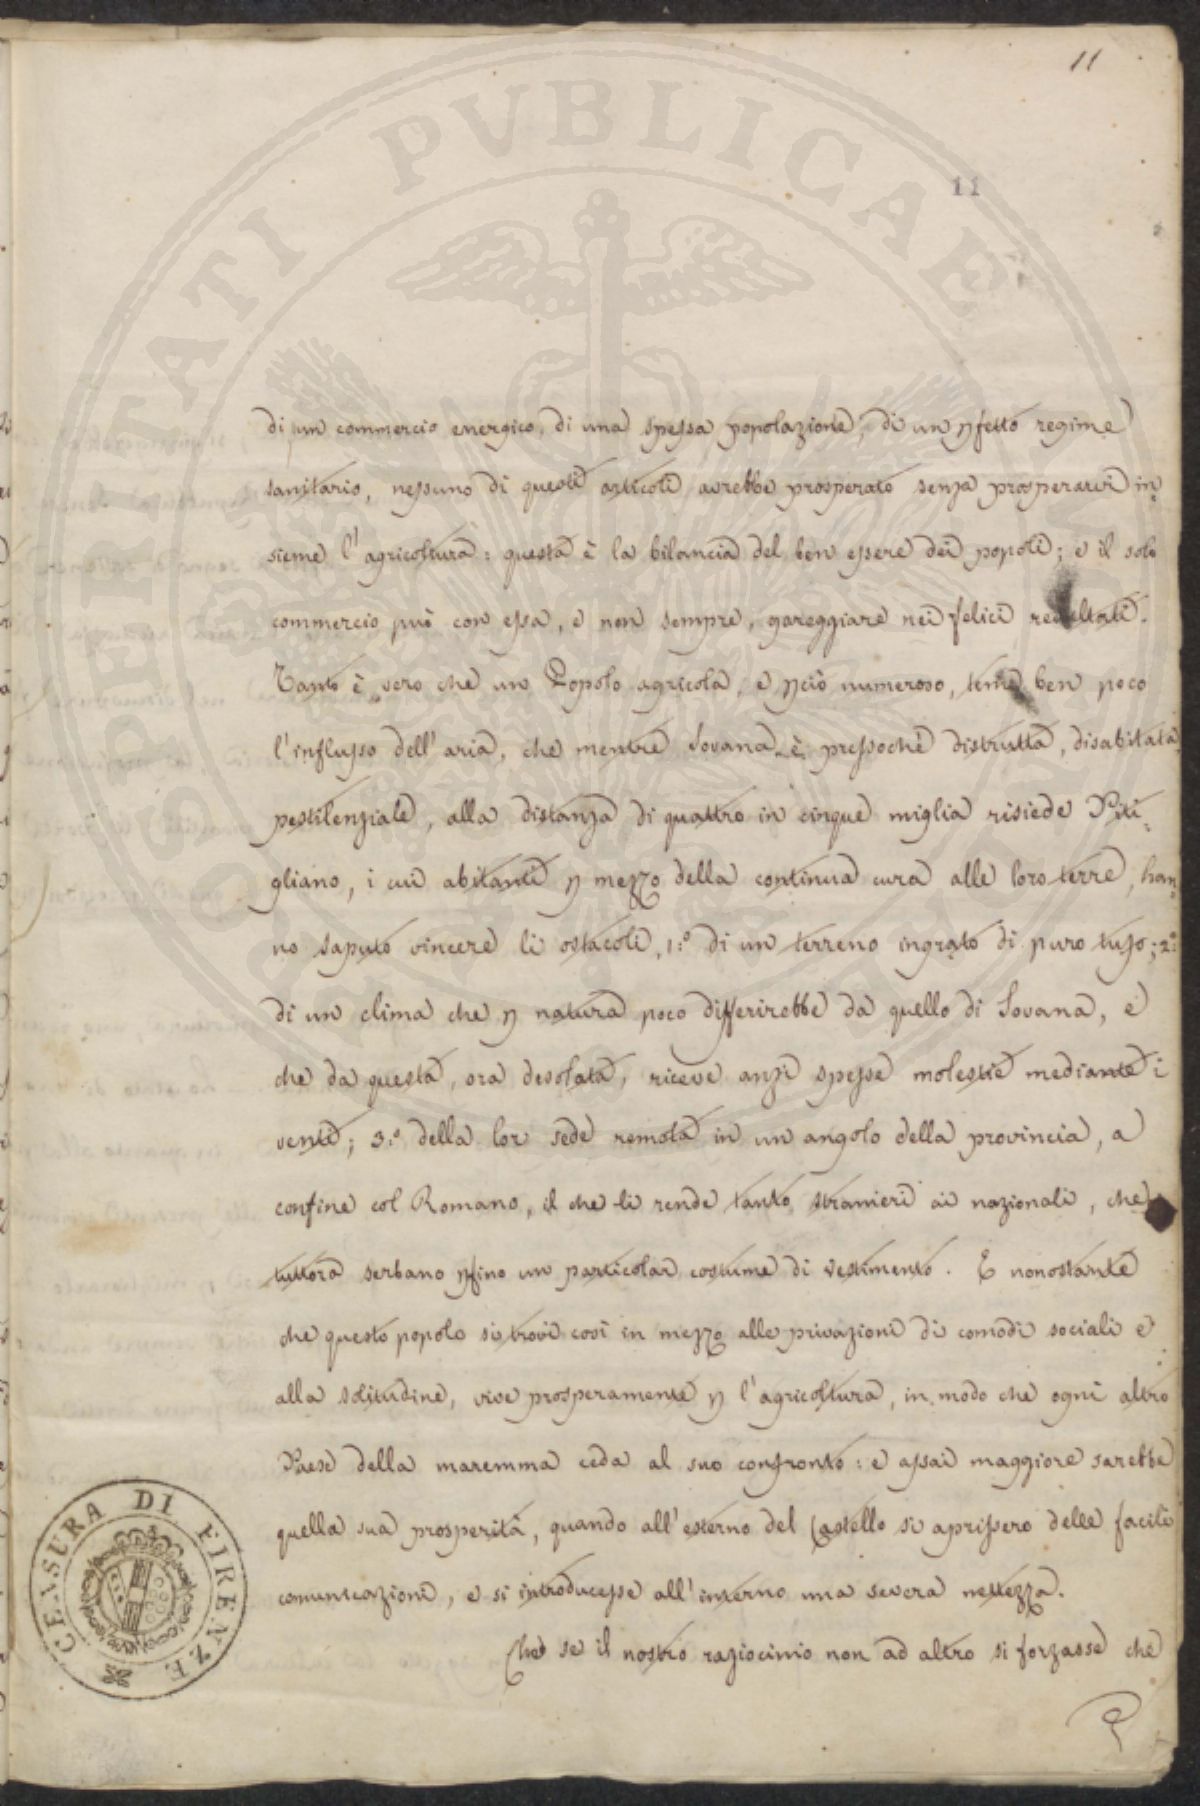 11
11
di un commercio energico, di una spessa popolazione, di un pfetto regime
sanitario, nessuno di questi articoli avrebbe prosperato senza prosperarvi in=
sieme l'agricoltura: questa è la bilancia del ben essere dei popoli; e il solo
commercio può con essa, e non sempre, gareggiare nei felici resultati.
Tanto è vero che un Popolo agricola, e pciò numeroso, teme ben poco
l'influsso dell'aria, che mentre Sovana è pressochè distrutta, disabitata
pestilenziale, alla distanza di quattro in cinque miglia risiede Piti=
gliano, i cui abitanti p mezzo della continua cura alle loro terre, han=
no saputo vincere li ostacoli, 1.° di un terreno ingrato di puro tufo; 2.°
di un clima che p natura poco differirebbe da quello di Sovana, e
che da questa, ora desolata, riceve anzi spesse molestie mediante i
venti; 3.° della lor sede remota in un angolo della provincia, a
confine col Romano, il che li rende tanto stranieri ai nazionali, che
tuttora serbano pfino un particolar costume di vestimento. E nonostante
che questo popolo si trovi così in mezzo alle privazioni di comodi sociali e
alla solitudine, vive prosperamente p l'agricoltura, in modo che ogni altro
Paese della maremma ceda al suo confronto: e assai maggiore sarebbe
quella sua prosperità, quando all'esterno del Castello si aprissero delle facili
comunicazioni, e si introducesse all'interno una severa nettezza.
Che se il nostro raziocinio non ad altro si forzasse che
CENSURA DI FIRENZE
PROSPERITATI PVBLICAE